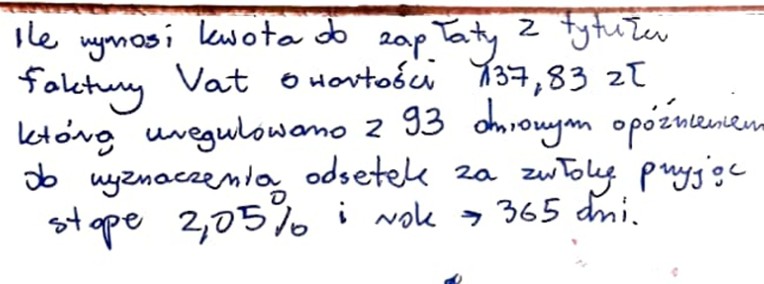 Ile wynosi kwota do zapłaty z tytułu
faktury Vat o wartości 137,83 zł
którą uregulowano z 93 dniowym opóźnieniem
do wyznaczenia odsetek za zwłokę przyjąc
stope 2,05% i rok → 365 dni.